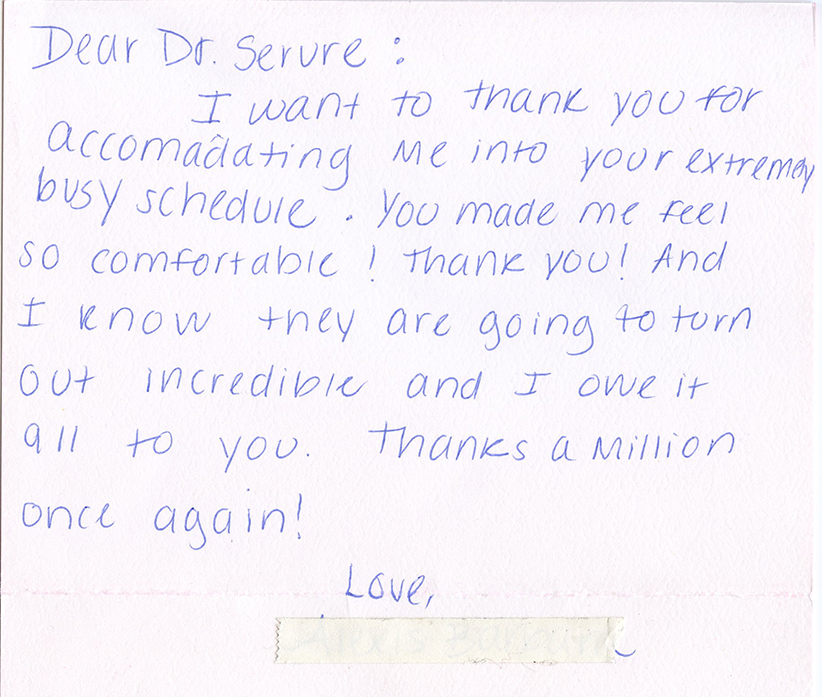 Dear Dr. Serure :
I want to thank you for
accomadating me into your extremely
busy schedule. You made me feel
so comfortable! Thank you! And
I know they are going to turn
out incredible and I owe it
all to you. Thanks a Million
once again!
Love,